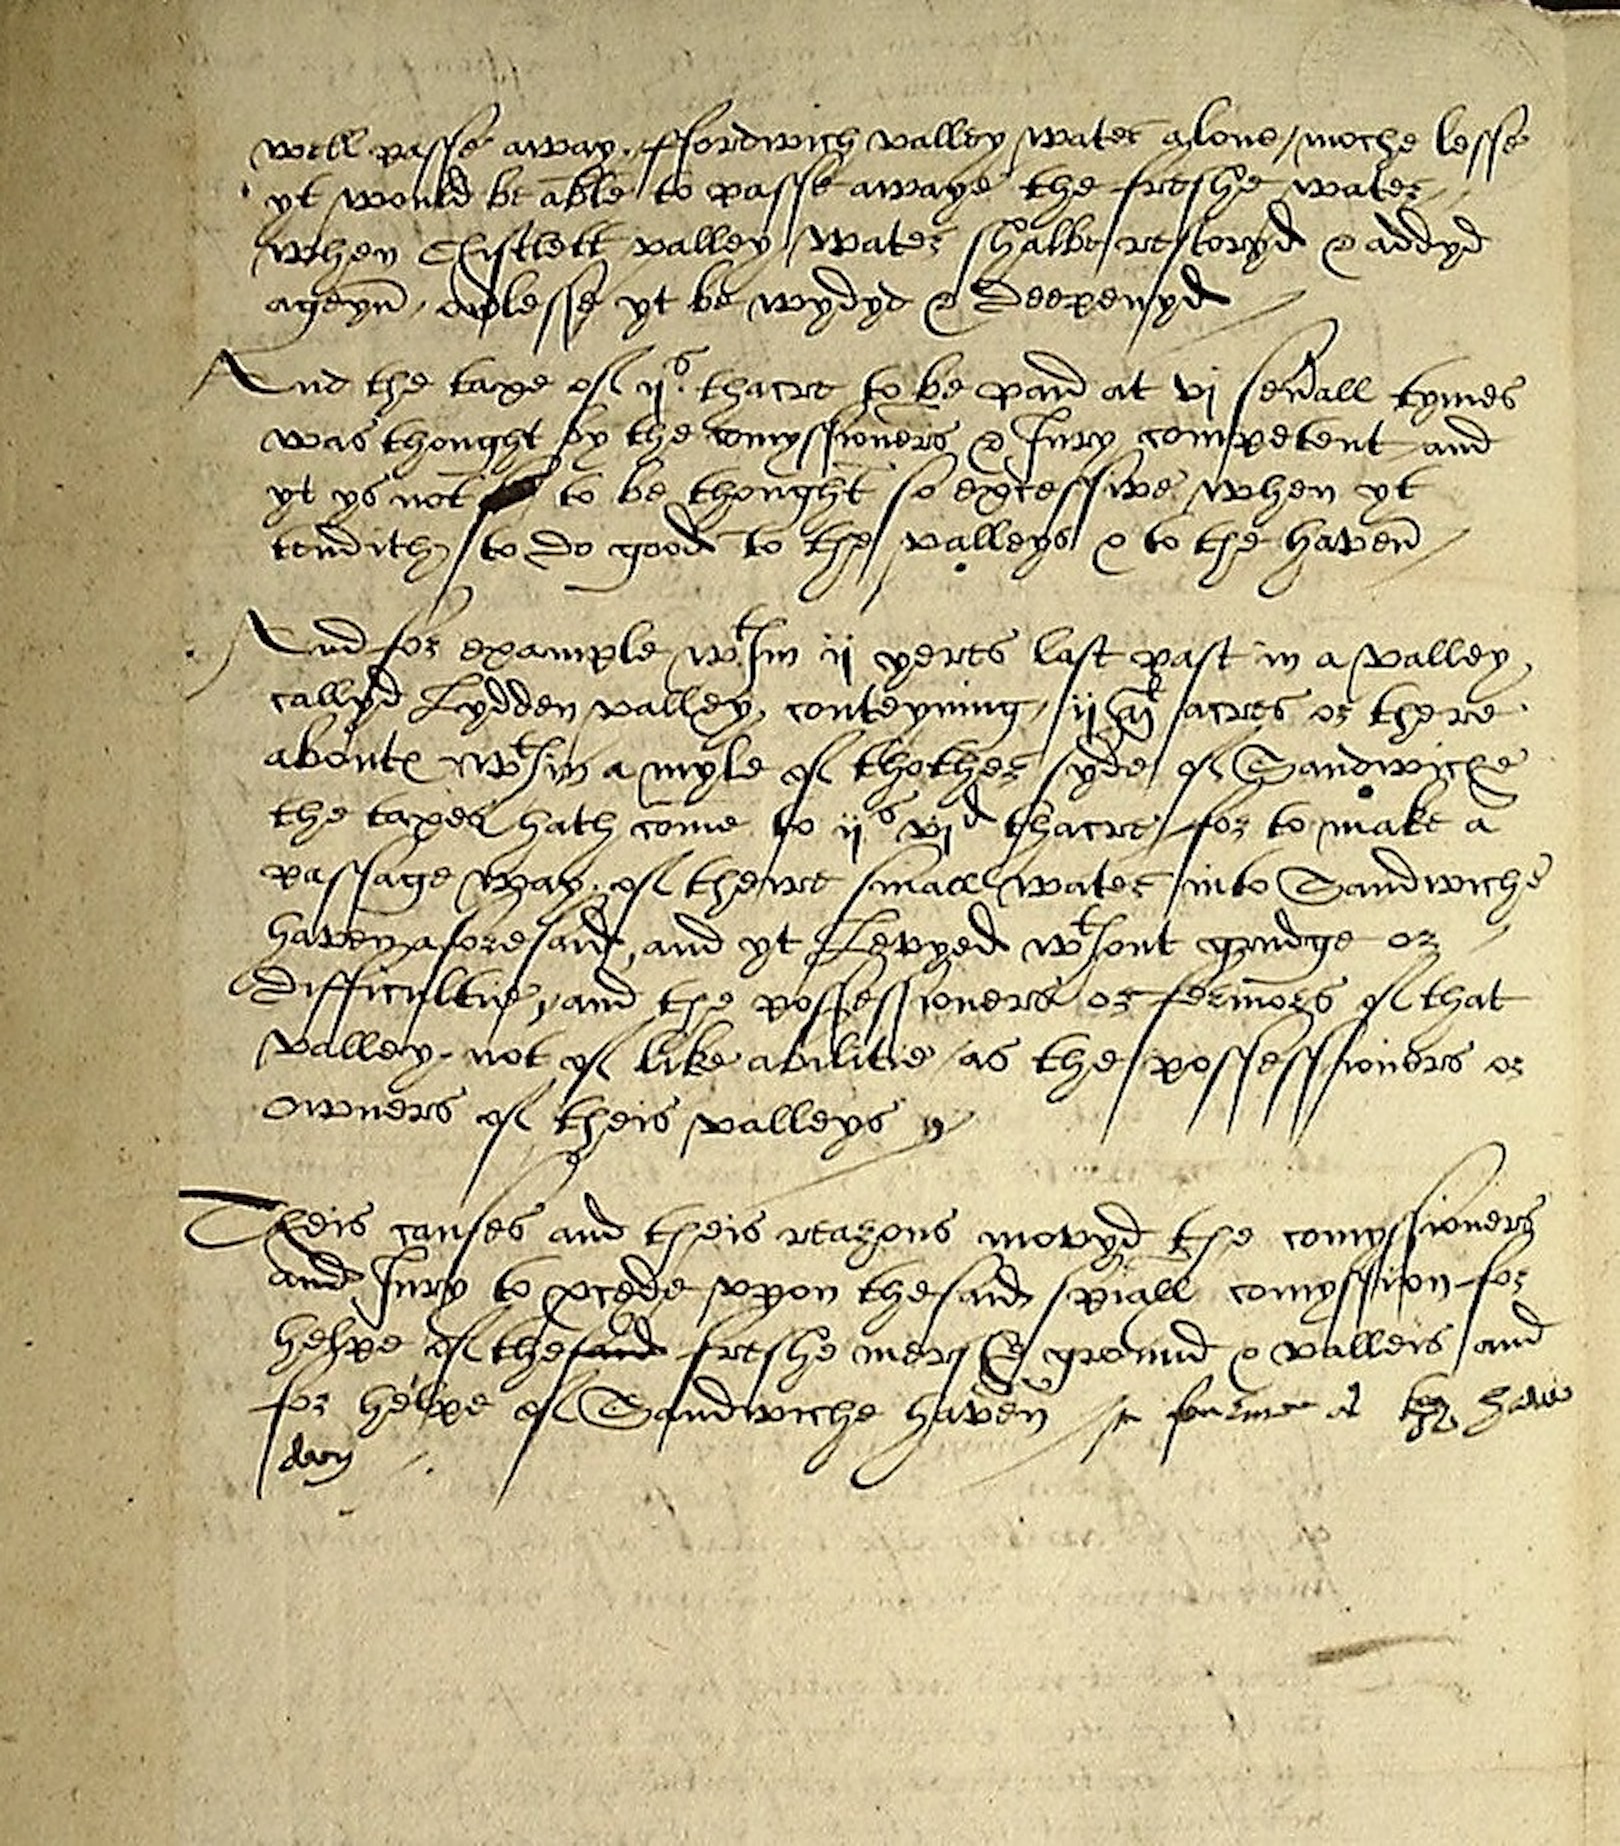 well passe away ffordwich valley water alone / moche lesse
yt would be able to passe awaye the freshe water
when Chistlett valley water shalbe restoryd & addyd
ageyn, owlesse yt be wydyd & Deepenyd
And the taxe of ijs thacre to be paid at vj seuall tymes
was thought by the comyssioners & Jury competent and
yt ys not to be thought so excessive when yt
tendith to do good to the valleys & to the haven
And for example wthin ij yeres last past in a valley
callyd Lydden valley, conteyning ij Ml acres or there
about wthin a myle of thother syde of Sandwiche
the taxes hath come to ijs vjd thacre for to make a
passage way of theire small water into Sandwiche
haven aforesaid, and yt Levyed wthout grudge or
difficultie, and the possessioners or fermors of that
valley not of like abilitie as the possessioners or
owners of theis valleys
Theis causes and theis reasons movyd the comyssioners
and Jury to pcede vpon the said spiall comyssion for
helpe of the said freshe mersh ground & valleis and
for helpe of Sandwiche haven